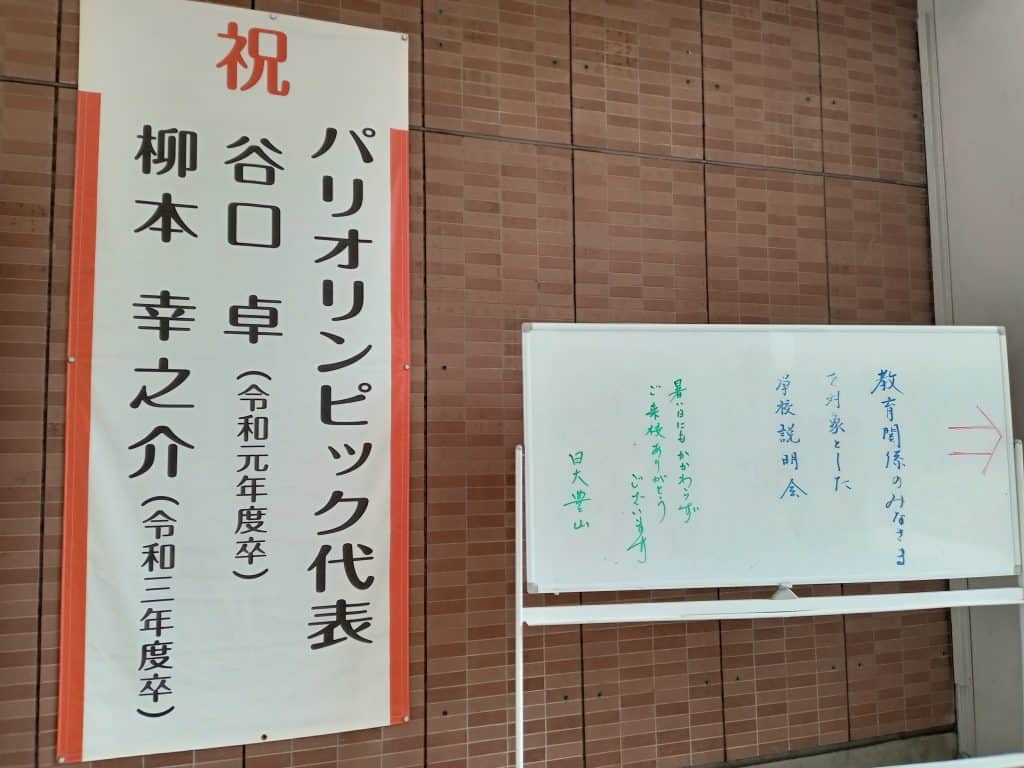 祝
パリオリンピック代表
谷口 卓(令和元年度卒)
柳本 幸之介(令和三年度卒)
教育関係のみなさま
を対象とした
学校説明会
暑い日にもかかわらず
ご来校ありがとう
ございます
日大豊山